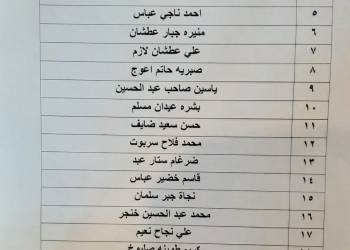 ٥ احمد ناجي عباس
٦ منيره جبار عطشان
٧ علي عطشان لازم
٨ صبريه حاتم اعوج
٩ ياسين صاحب عبد الحسين
١٠ بشره عيدان مسلم
١١ حسن سعيد ضايف
١٢ محمد فلاح سربوت
١٣ ضرغام ستار عبد
١٤ قاسم خضير عباس
١٥ نجاة جبر سلمان
١٦ محمد عبد الحسين خنجر
١٧ علي نجاح نعيم